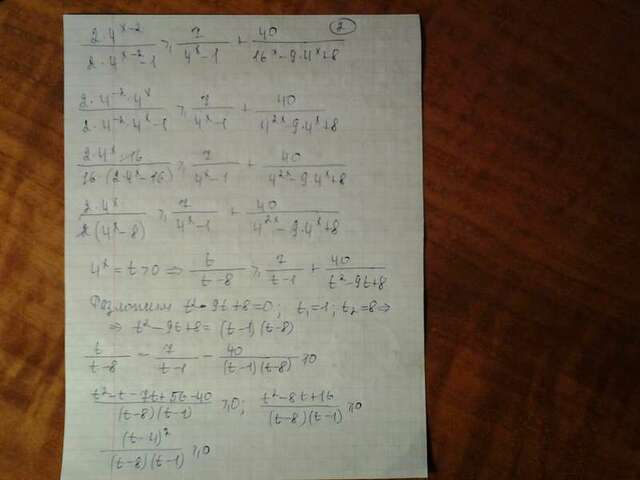 ②
2·4^(x-2) / (2·4^(x-2) - 1) ≥ 7/(4^x - 1) + 40/(16^x - 9·4^x + 8)
2·4^(-2)·4^x / (2·4^(-2)·4^x - 1) ≥ 7/(4^x - 1) + 40/(4^(2x) - 9·4^x + 8)
2·4^x·16 / (16·(2·4^x - 16)) ≥ 7/(4^x - 1) + 40/(4^(2x) - 9·4^x + 8)
2·4^x / (2(4^x - 8)) ≥ 7/(4^x - 1) + 40/(4^(2x) - 9·4^x + 8)
4^x = t > 0 ⇒ t/(t-8) ≥ 7/(t-1) + 40/(t² - 9t + 8)
Разложим t² - 9t + 8 = 0; t₁ = 1; t₂ = 8 ⇒
⇒ t² - 9t + 8 = (t-1)(t-8)
t/(t-8) - 7/(t-1) - 40/((t-1)(t-8)) ≥ 0
(t² - t - 7t + 56 - 40)/((t-8)(t-1)) ≥ 0; (t² - 8t + 16)/((t-8)(t-1)) ≥ 0
(t-4)²/((t-8)(t-1)) ≥ 0